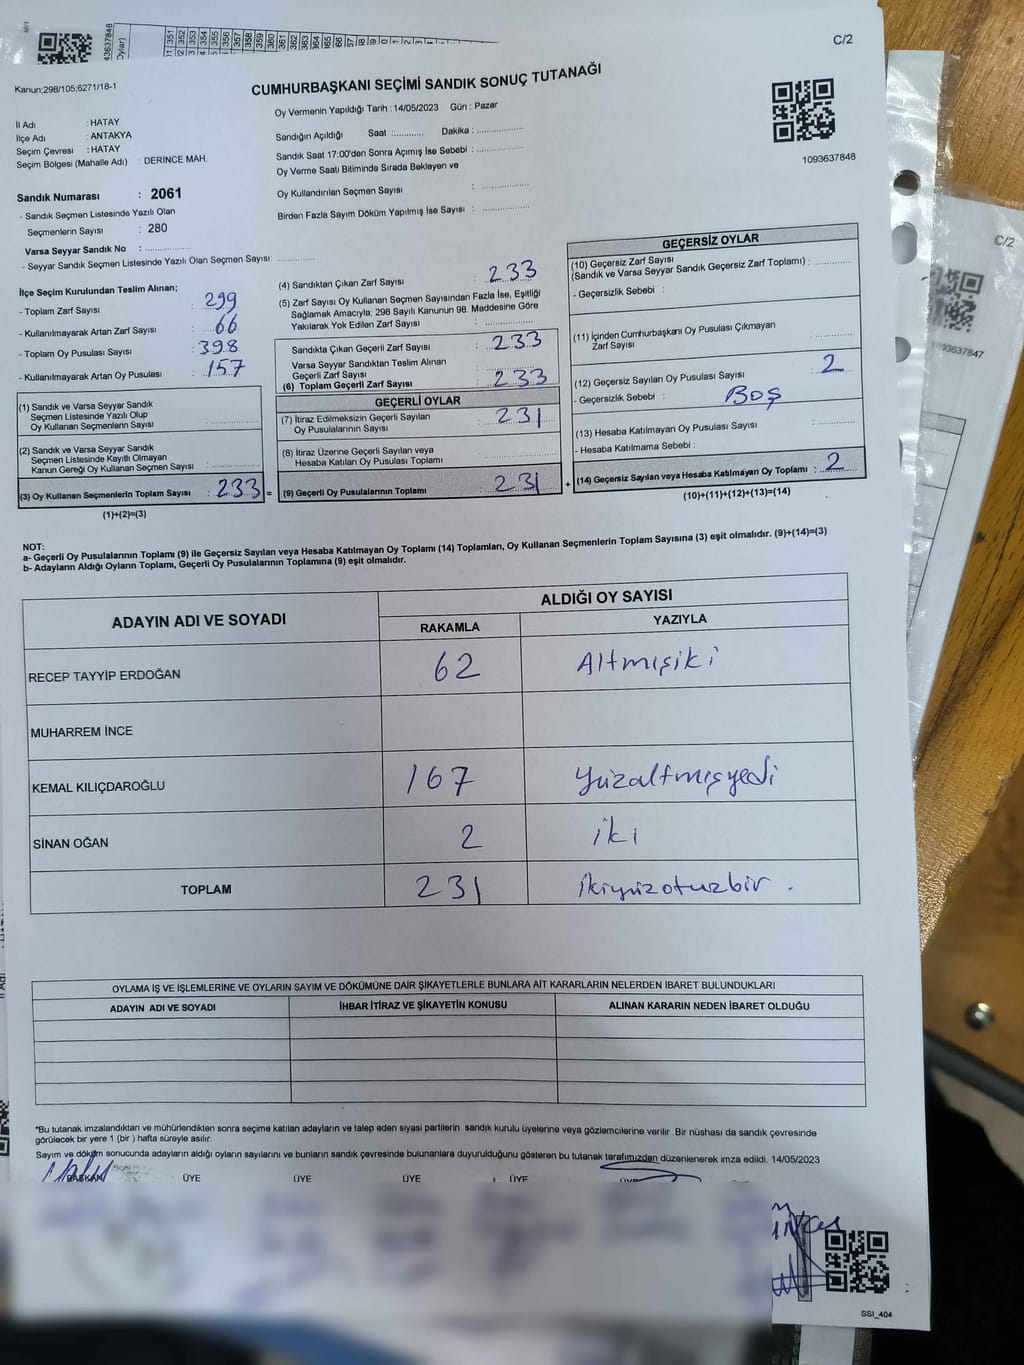 C/2
Kanun;298/105;6271/18-1
CUMHURBAŞKANI SEÇİMİ SANDIK SONUÇ TUTANAĞI
Oy Vermenin Yapıldığı Tarih : 14/05/2023 Gün : Pazar
İl Adı : HATAY
İlçe Adı : ANTAKYA
Seçim Çevresi : HATAY
Seçim Bölgesi (Mahalle Adı) : DERINCE MAH.
Sandığın Açıldığı Saat :........... Dakika : ................
Sandık Saat 17:00'den Sonra Açımış İse Sebebi : ................
Oy Verme Saati Bitiminde Sırada Bekleyen ve
Oy Kullandırılan Seçmen Sayısı : ................
Birden Fazla Sayım Döküm Yapılmış İse Sayısı : ................
1093637848
Sandık Numarası : 2061
- Sandık Seçmen Listesinde Yazılı Olan
Seçmenlerin Sayısı : 280
Varsa Seyyar Sandık No : ................
- Seyyar Sandık Seçmen Listesinde Yazılı Olan Seçmen Sayısı: ............
İlçe Seçim Kurulundan Teslim Alınan;
- Toplam Zarf Sayısı : 299
- Kullanılmayarak Artan Zarf Sayısı : 66
- Toplam Oy Pusulası Sayısı : 398
- Kullanılmayarak Artan Oy Pusulası : 157
(1) Sandık ve Varsa Seyyar Sandık
Seçmen Listesinde Yazılı Olup
Oy Kullanan Seçmenlerin Sayısı : ................
(2) Sandık ve Varsa Seyyar Sandık
Seçmen Listesinde Kayıtlı Olmayan
Kanun Gereği Oy Kullanan Seçmen Sayısı : ................
(3) Oy Kullanan Seçmenlerin Toplam Sayısı : 233 =
(1)+(2)=(3)
(4) Sandıktan Çıkan Zarf Sayısı : 233
(5) Zarf Sayısı Oy Kullanan Seçmen Sayısından Fazla İse, Eşitliği
Sağlamak Amacıyla; 298 Sayılı Kanunun 98. Maddesine Göre
Yakılarak Yok Edilen Zarf Sayısı : ................
Sandıkta Çıkan Geçerli Zarf Sayısı : 233
Varsa Seyyar Sandıktan Teslim Alınan
Geçerli Zarf Sayısı : ................
(6) Toplam Geçerli Zarf Sayısı : 233
GEÇERLİ OYLAR
(7) İtiraz Edilmeksizin Geçerli Sayılan
Oy Pusulalarının Sayısı : 231
(8) İtiraz Üzerine Geçerli Sayılan veya
Hesaba Katılan Oy Pusulası Toplamı : ................
(9) Geçerli Oy Pusulalarının Toplamı : 231 +
GEÇERSİZ OYLAR
(10) Geçersiz Zarf Sayısı
(Sandık ve Varsa Seyyar Sandık Geçersiz Zarf Toplamı) : ............
- Geçersizlik Sebebi :
(11) İçinden Cumhurbaşkanı Oy Pusulası Çıkmayan
Zarf Sayısı : ............
(12) Geçersiz Sayılan Oy Pusulası Sayısı : 2
- Geçersizlik Sebebi : BOŞ
(13) Hesaba Katılmayan Oy Pusulası Sayısı : ............
- Hesaba Katılmama Sebebi :
(14) Geçersiz Sayılan veya Hesaba Katılmayan Oy Toplamı : 2
(10)+(11)+(12)+(13)=(14)
NOT:
a- Geçerli Oy Pusulalarının Toplamı (9) ile Geçersiz Sayılan veya Hesaba Katılmayan Oy Toplamı (14) Toplamları, Oy Kullanan Seçmenlerin Toplam Sayısına (3) eşit olmalıdır. (9)+(14)=(3)
b- Adayların Aldığı Oyların Toplamı, Geçerli Oy Pusulalarının Toplamına (9) eşit olmalıdır.
ADAYIN ADI VE SOYADI
ALDIĞI OY SAYISI
RAKAMLA YAZIYLA
RECEP TAYYİP ERDOĞAN 62 Altmışiki
MUHARREM İNCE
KEMAL KILIÇDAROĞLU 167 Yüzaltmışyedi
SİNAN OĞAN 2 iki
TOPLAM 231 ikiyüzotuzbir .
OYLAMA İŞ VE İŞLEMLERİNE VE OYLARIN SAYIM VE DÖKÜMÜNE DAİR ŞİKAYETLERLE BUNLARA AİT KARARLARIN NELERDEN İBARET BULUNDUKLARI
ADAYIN ADI VE SOYADI İHBAR İTİRAZ VE ŞİKAYETİN KONUSU ALINAN KARARIN NEDEN İBARET OLDUĞU
*Bu tutanak imzalandıktan ve mühürlendikten sonra seçime katılan adayların ve talep eden siyasi partilerin sandık kurulu üyelerine veya gözlemcilerine verilir .Bir nüshası da sandık çevresinde
görülecek bir yere 1 (bir ) hafta süreyle asılır.
Sayım ve döküm sonucunda adayların aldığı oyların sayılarını ve bunların sandık çevresinde bulunanlara duyurulduğunu gösteren bu tutanak tarafımızdan düzenlenerek imza edildi. 14/05/2023
BAŞKAN ÜYE ÜYE ÜYE ÜYE ÜYE
SSI_404
C/2